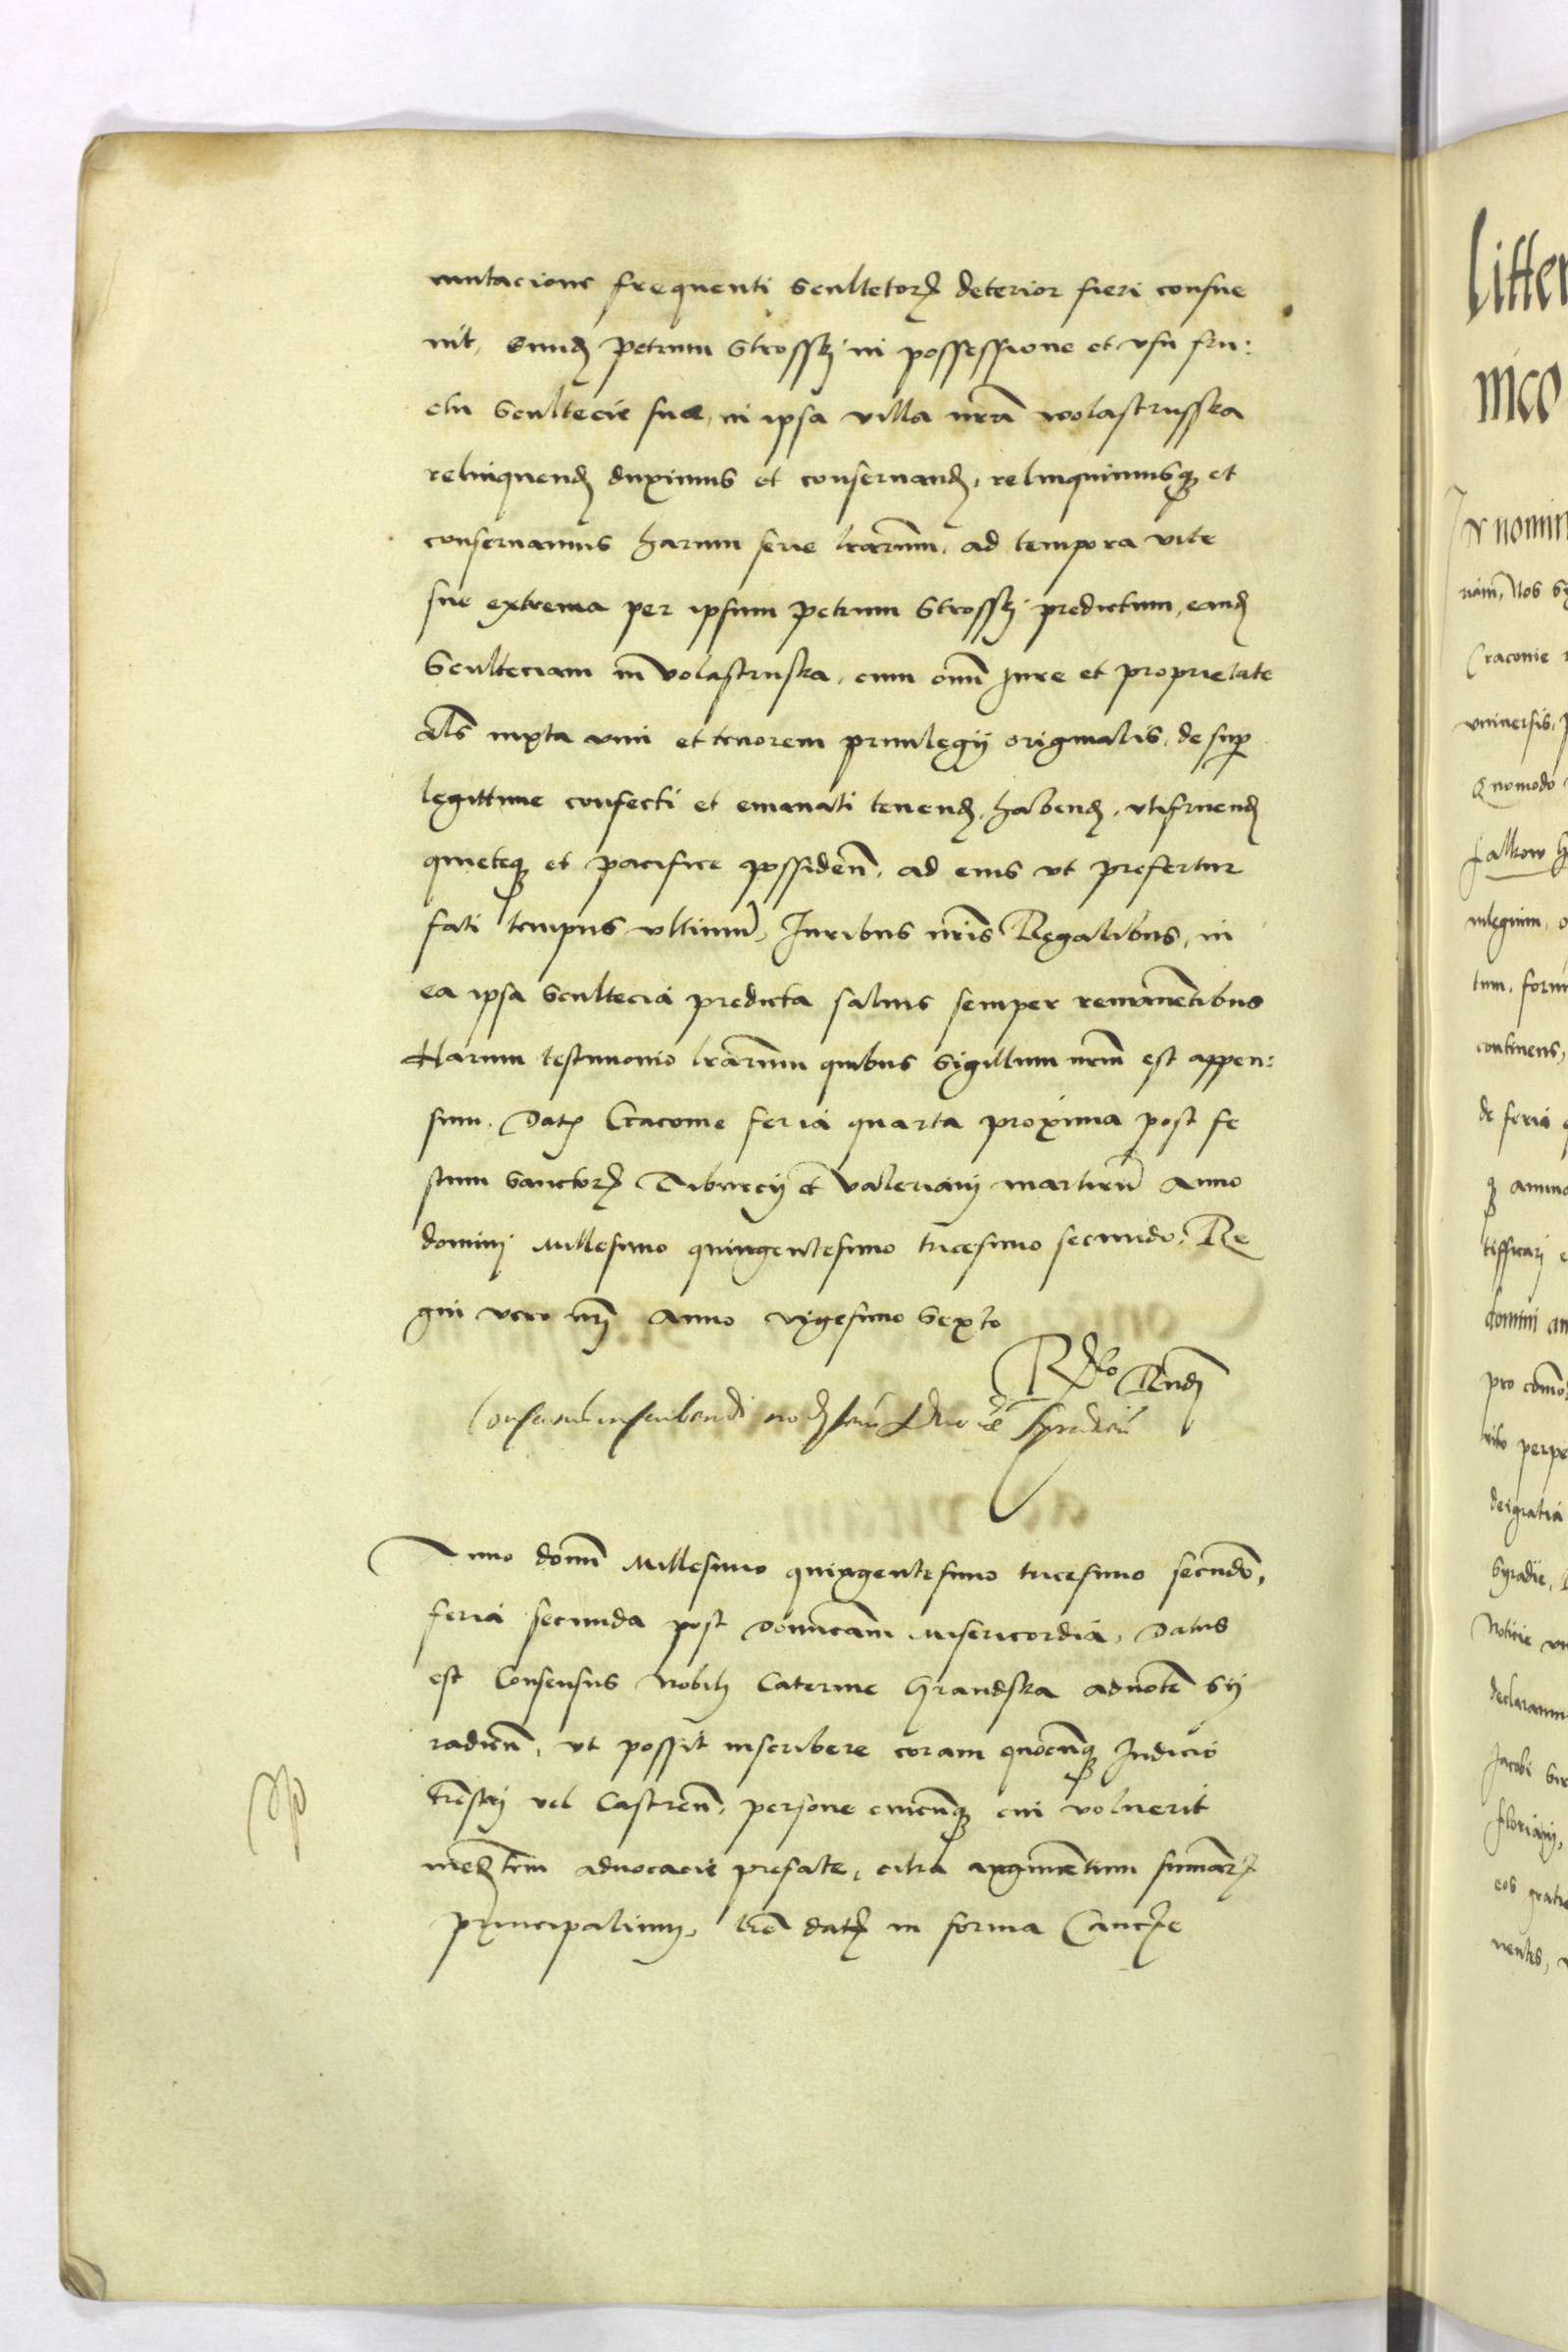 mutacione frequenti Scultetorꝝ deterior fieri consue
uit, Eundꝫ Petrum Strosskj in possessione et vsu fru:
ctu Scultecie sue, in ipsa villa nr̃a wolastrusska
relinquendꝫ duximus et conseruandꝫ, relinquimusqꝫ et
conseruamus harum serie lr̃arum, ad tempora vite
sue extrema per ipsum Petrum Strosskj predictum, eandꝫ
Sculteciam in volastruska, cum om̃i Jure et proprietate
al̃s iuxta vim et tenorem priuilegij originalis, desup
legittime confecti et emanati tenendꝫ, habendꝫ, vtifruendꝫ
quieteqꝫ et pacifice possiden̄, ad eius vt prefertur
fati tempus vltimū, Juribus nr̃is Regalibus, in
ea ipsa Scultecia predicta saluis semper remanentibus
Harum testimonio lr̃arum quibus Sigillum nr̃m est appen:
sum. Datꝫ Cracouie feria quarta proxima post fe
stum Sanctorꝝ Tiburcij et Valeriani martirū Anno
dominj Millesimo quingentesimo tricesimo secundo, Re
gni vero nr̃j Anno vigesimo Sexto
Rdo Rendꝫ
Consensus inscribendi
Anno domī Millesimo quingentesimo tricesimo secundo,
feria secunda post Dominicam Misericordia, Datus
est Consensus Nobili Caterine Grandska aduoten̄ Sij
radien̄, vt possit inscribere coram quocunqꝫ Judicio
trẽstrj vel Castren̄, persone cuicunqꝫ cui voluerit
medietatem aduocacie prefate, citra augmentum sum̄arꝝ
principalium, lr̃e datꝫ in forma Cancꝝe
Litter
nico
In nomin
riam, Nos Si
Cracouie
vniuersis, p
Quomodo
falkow h
uilegium, o
tum, form
continens,
de feria
qꝫ animo
tifficarj e
domini an
pro com̄o
uito perpe
dei gratia
Syradie,
Noticie vn
declaramu
Jacobi
Florianj,
eos gratia
uentes,